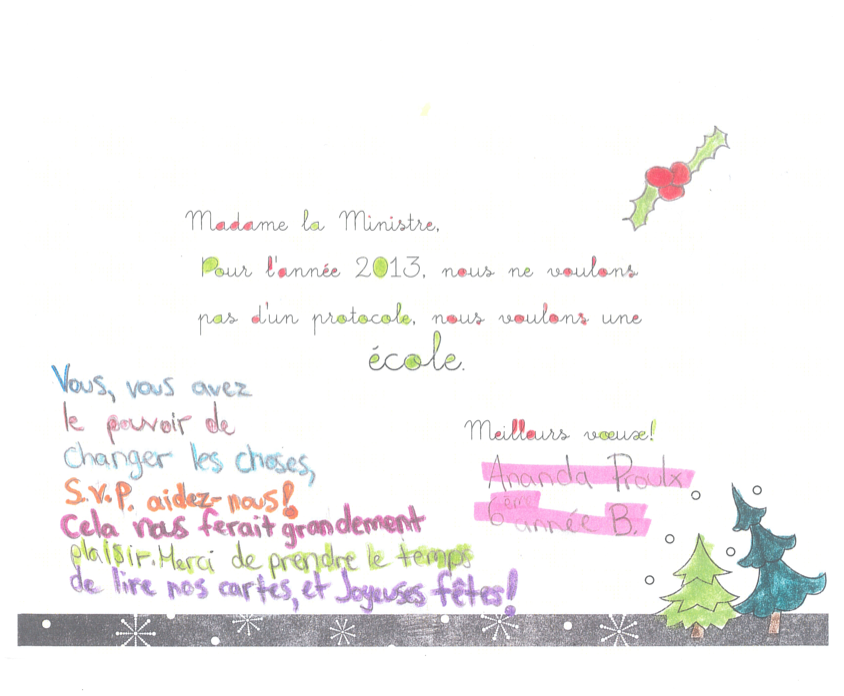 Madame la Ministre,
Pour l'année 2013, nous ne voulons
pas d'un protocole, nous voulons une
école.
Vous, vous avez
le pouvoir de
changer les choses,
S.V.P. aidez-nous!
Cela nous ferait grandement
plaisir. Merci de prendre le temps
de lire nos cartes, et Joyeuses fêtes!
Meilleurs vœux!
Ananda Proulx
6ème
6 année B.